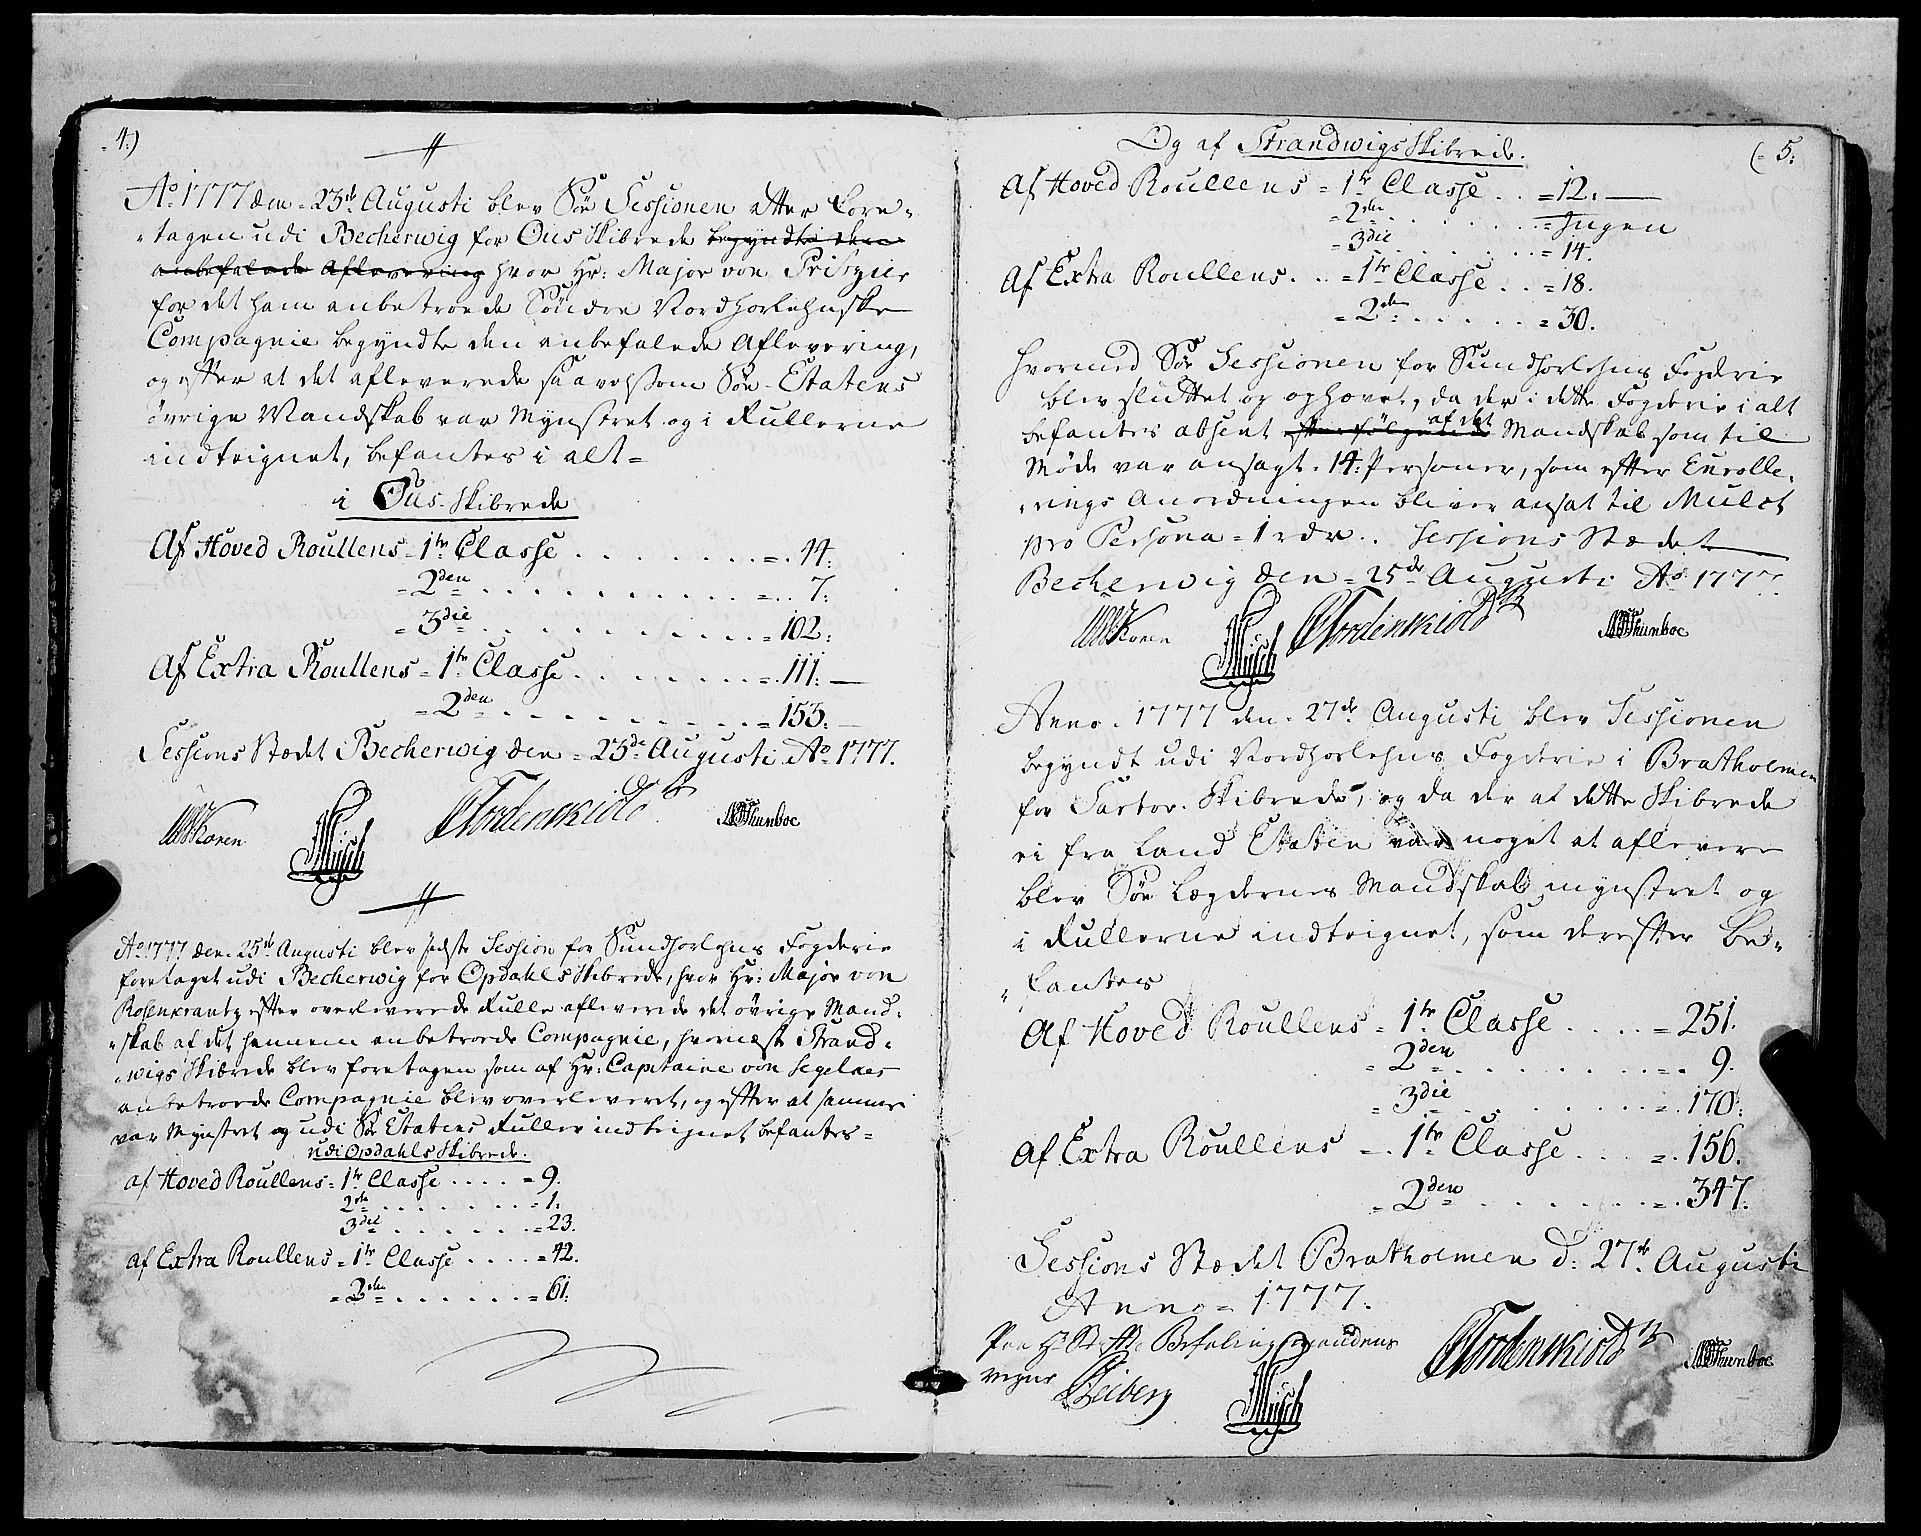 4.)
Ao. 1777 den 23de Augusti blev Søe Sessionen etter fore-
tagen udi Becherwig for Ous Skibrede begyndte den
anbefalede Aflevering hvor Hr: Major von
for det ham anbetroede Søndre Nordhorlehnske
Compagnie begyndte den anbefalede Aflevering,
og efter at det afleverede saavelsom Søe-Etatens
øvrige Mandskab var Mynstret og i Rullerne
indteignet, befantes i alt=
i Ous Skibrede
Af Hoved Roullens = 1te Classe . . . . . . . = 44:
= 2den . . . . . . . . . . = . . 7:
= 3die . . . . . . . . . . = 102:
Af Extra Roullens = 1te Classe . . . . . . . = 111:
= 2den . . . . . . . . . . = 153:
Sessions Stædet Becherwig den = 23de Augusti Ao 1777.
Koren Mÿsch Tordenskiold Thunboe
Ao 1777 den 25de Augusti blev sidste Session for Sundhorlehns Fogderie
foretaget udi Becherwig for Opdahls Skibrede, hvor Hr: Major von
Rosenkrantz efter overleverede Rulle afleverede det øvrige Mand-
skab af det hannem anbetroede Compagnie, hvornæst Strand-
wigs Skibrede blev foretagen som af Hr: Capitaine von Segelcke
anbetroede Compagnie blev overleveret, og efter at samme
var Mynstret og udi Søe Etatens Ruller indteignet befantes=
udi Opdahls Skibrede.
af Hoved Roullens = 1te Classe . . . . = 9.
2de . . . . . . . . = 1.
3die . . . . . . . = 23.
af Extra Roullens = 1te Classe . . . . = 42.
= 2den . . . . . . = 61.
(= 5:
Og af Strandwigs Skibrede.
Af Hoved Roullens = 1te Classe . . = 12:
= 2den . . . . . . = Ingen
= 3die . . . . . . = 14.
Af Extra Roullens . . = 1te Classe . . = 18.
= 2den . . . . . . = 30.
hvormed Søe Sessionen for Sundhorlehns Fogderie
blev sluttet og ophævet, da der i dette Fogderie i alt
befantes absent af det Mandskab som til
Møde var ansagt. 14: Personer, som efter Enrolle-
rings Anordningen bliver ansat til Mulct
pro Persona = 1 rdr. . Sessions Stædet
Becherwig den = 25de Augusti Ao 1777
Koren Mÿsch Tordenskiold Thunboe
Anno. 1777 den. 27de Augusti blev Sessionen
begyndt udi Nordhorlehns Fogderie i Bratholmen
for Sartor. Skibrede, og da der af dette Skibrede
ei fra Land Etaten var noget at aflevere
blev Søe Lægdernes Mandskab mynstret og
i Rullerne indteignet, som derefter be-
fantes
Af Hoved Roullens = 1te Classe . . . . = 251.
= 2den . . . . . . . . = . 9.
= 3die . . . . . . . . = . 170.
Af Extra Roullens = . 1te Classe . . . = . 156.
= 2den . . . . . . . = . 347.
Sessions Stædet Bratholmen d: 27de Augusti
Anno = 1777.
Paa Hr Stiftb: Befalingsmandens
vegne Heiberg Mÿsch Tordenskiold Thunboe